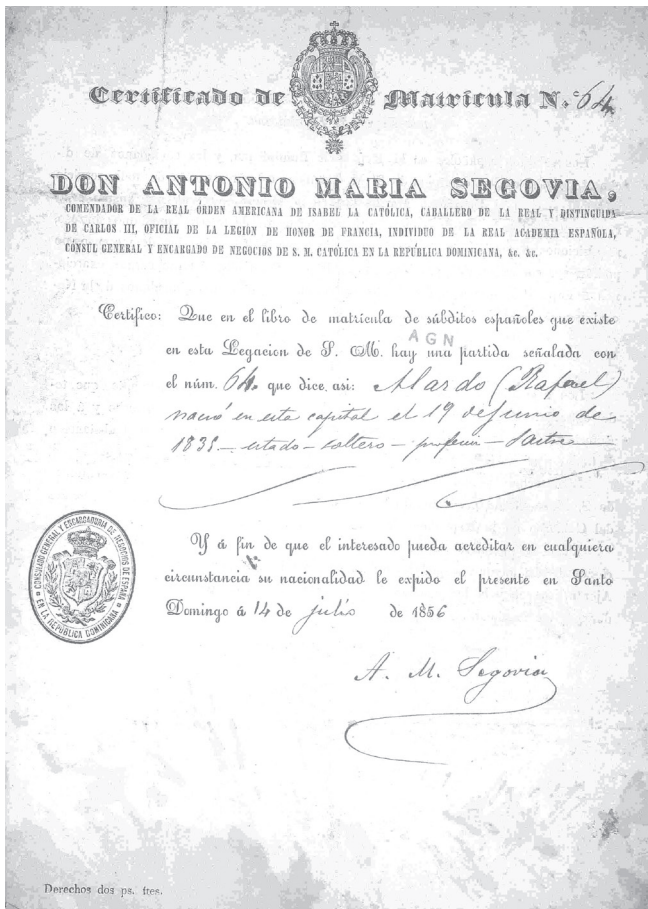 Certificado de Matrícula N.º 64.
DON ANTONIO MARIA SEGOVIA,
COMENDADOR DE LA REAL ÓRDEN AMERICANA DE ISABEL LA CATÓLICA, CABALLERO DE LA REAL Y DISTINGUIDA
DE CARLOS III, OFICIAL DE LA LEGION DE HONOR DE FRANCIA, INDIVIDUO DE LA REAL ACADEMIA ESPAÑOLA,
CÓNSUL GENERAL Y ENCARGADO DE NEGOCIOS DE S. M. CATÓLICA EN LA REPÚBLICA DOMINICANA, &c. &c.
Certifico: Que en el libro de matrícula de súbditos españoles que existe
AGN
en esta Legacion de S. M. hay una partida señalada con
el núm. 64. que dice asi: Alardo (Rafael)
nació en esta capital el 19 de Junio de
estado - soltero - profesion - Sastre
CONSULADO GENERAL Y ENCARGADURIA DE NEGOCIOS DE ESPAÑA
EN LA REPUBLICA DOMINICANA
Y á fin de que el interesado pueda acreditar en cualquiera
circunstancia su nacionalidad le expido el presente en Santo
Domingo á 14 de julio de 1856
A. M. Segovia
Derechos dos ps. ftes.